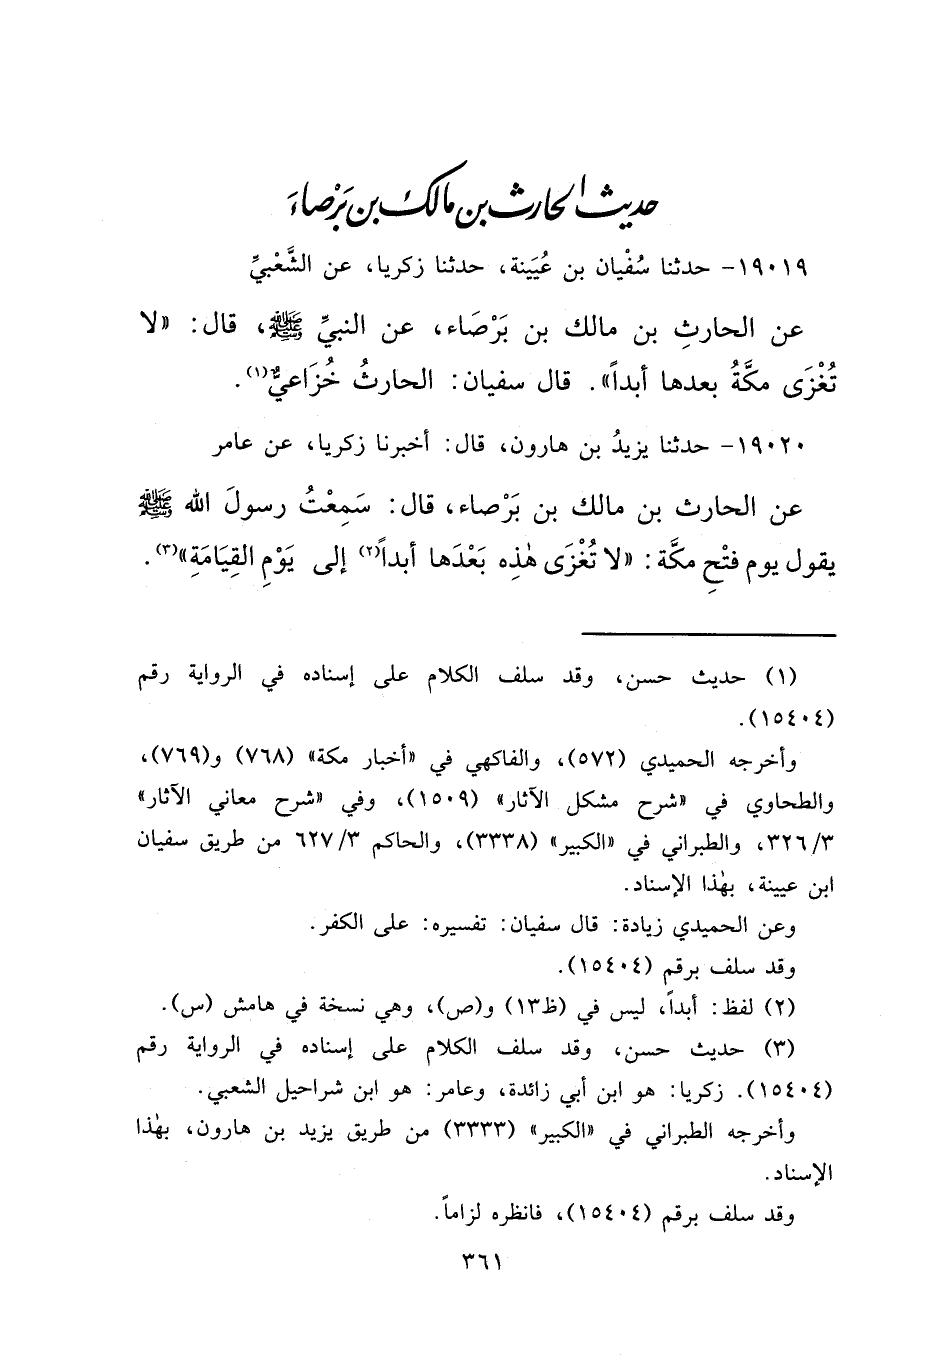 حديث الحارث بن مالك بن بَرْصاءَ
١٩٠١٩- حدثنا سُفْيان بن عُيَينة، حدثنا زكريا، عن الشَّعْبيِّ
عن الحارثِ بن مالك بن بَرْصَاء، عن النبيِّ ﷺ، قال: «لا
تُغْزَى مكَّةُ بعدها أبداً». قال سفيان: الحارثُ خُزَاعيٌّ(١).
١٩٠٢٠- حدثنا يزيدُ بن هارون، قال: أخبرنا زكريا، عن عامر
عن الحارث بن مالك بن بَرْصاء، قال: سَمِعْتُ رسولَ الله ﷺ
يقول يوم فتْحِ مكَّة: «لا تُغْزَى هٰذِه بَعْدَها أبداً(٢) إلى يَوْمِ القِيَامَةِ»(٣).
(١) حديث حسن، وقد سلف الكلام على إسناده في الرواية رقم
(١٥٤٠٤).
وأخرجه الحميدي (٥٧٢)، والفاكهي في «أخبار مكة» (٧٦٨) و(٧٦٩)،
والطحاوي في «شرح مشكل الآثار» (١٥٠٩)، وفي «شرح معاني الآثار»
٣٢٦/٣، والطبراني في «الكبير» (٣٣٣٨)، والحاكم ٦٢٧/٣ من طريق سفيان
ابن عيينة، بهٰذا الإسناد.
وعن الحميدي زيادة: قال سفيان: تفسيره: على الكفر.
وقد سلف برقم (١٥٤٠٤).
(٢) لفظ: أبداً، ليس في (ظ١٣) و(ص)، وهي نسخة في هامش (س).
(٣) حديث حسن، وقد سلف الكلام على إسناده في الرواية رقم
(١٥٤٠٤). زكريا: هو ابن أبي زائدة، وعامر: هو ابن شراحيل الشعبي.
وأخرجه الطبراني في «الكبير» (٣٣٣٣) من طريق يزيد بن هارون، بهٰذا
الإسناد.
وقد سلف برقم (١٥٤٠٤)، فانظره لزاماً.
٣٦١